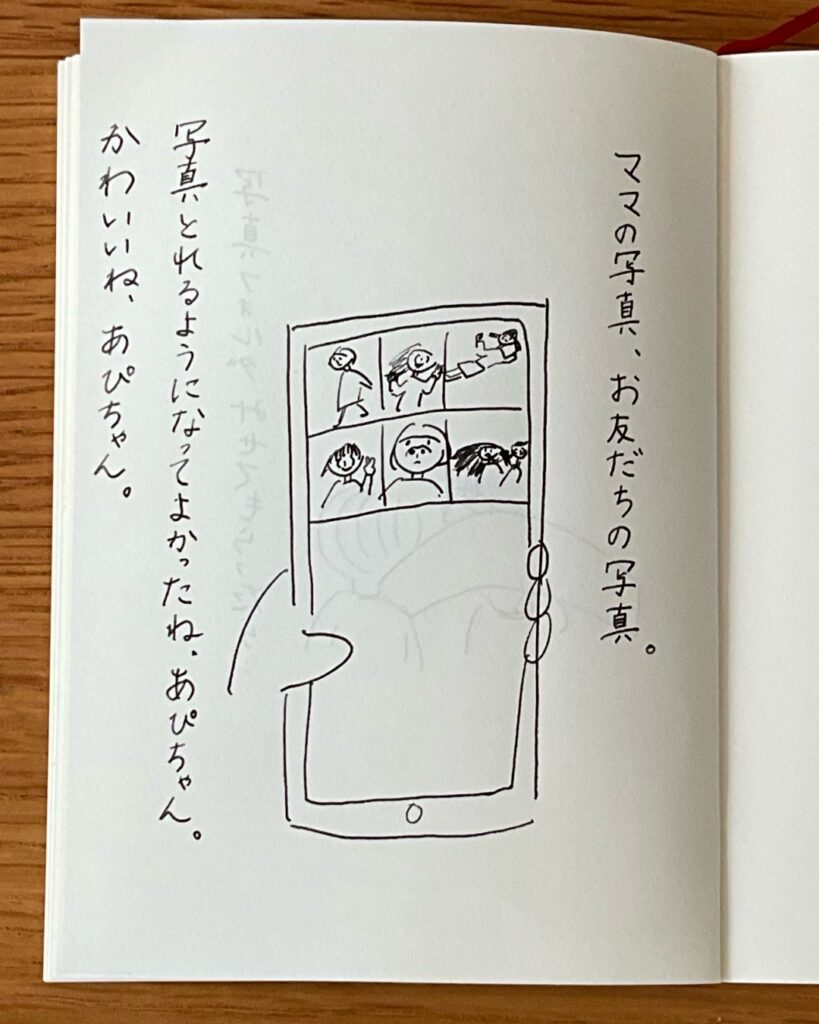 ママの写真、お友だちの写真。
写真とれるようになってよかったね、あぴちゃん。
かわいいね、あぴちゃん。